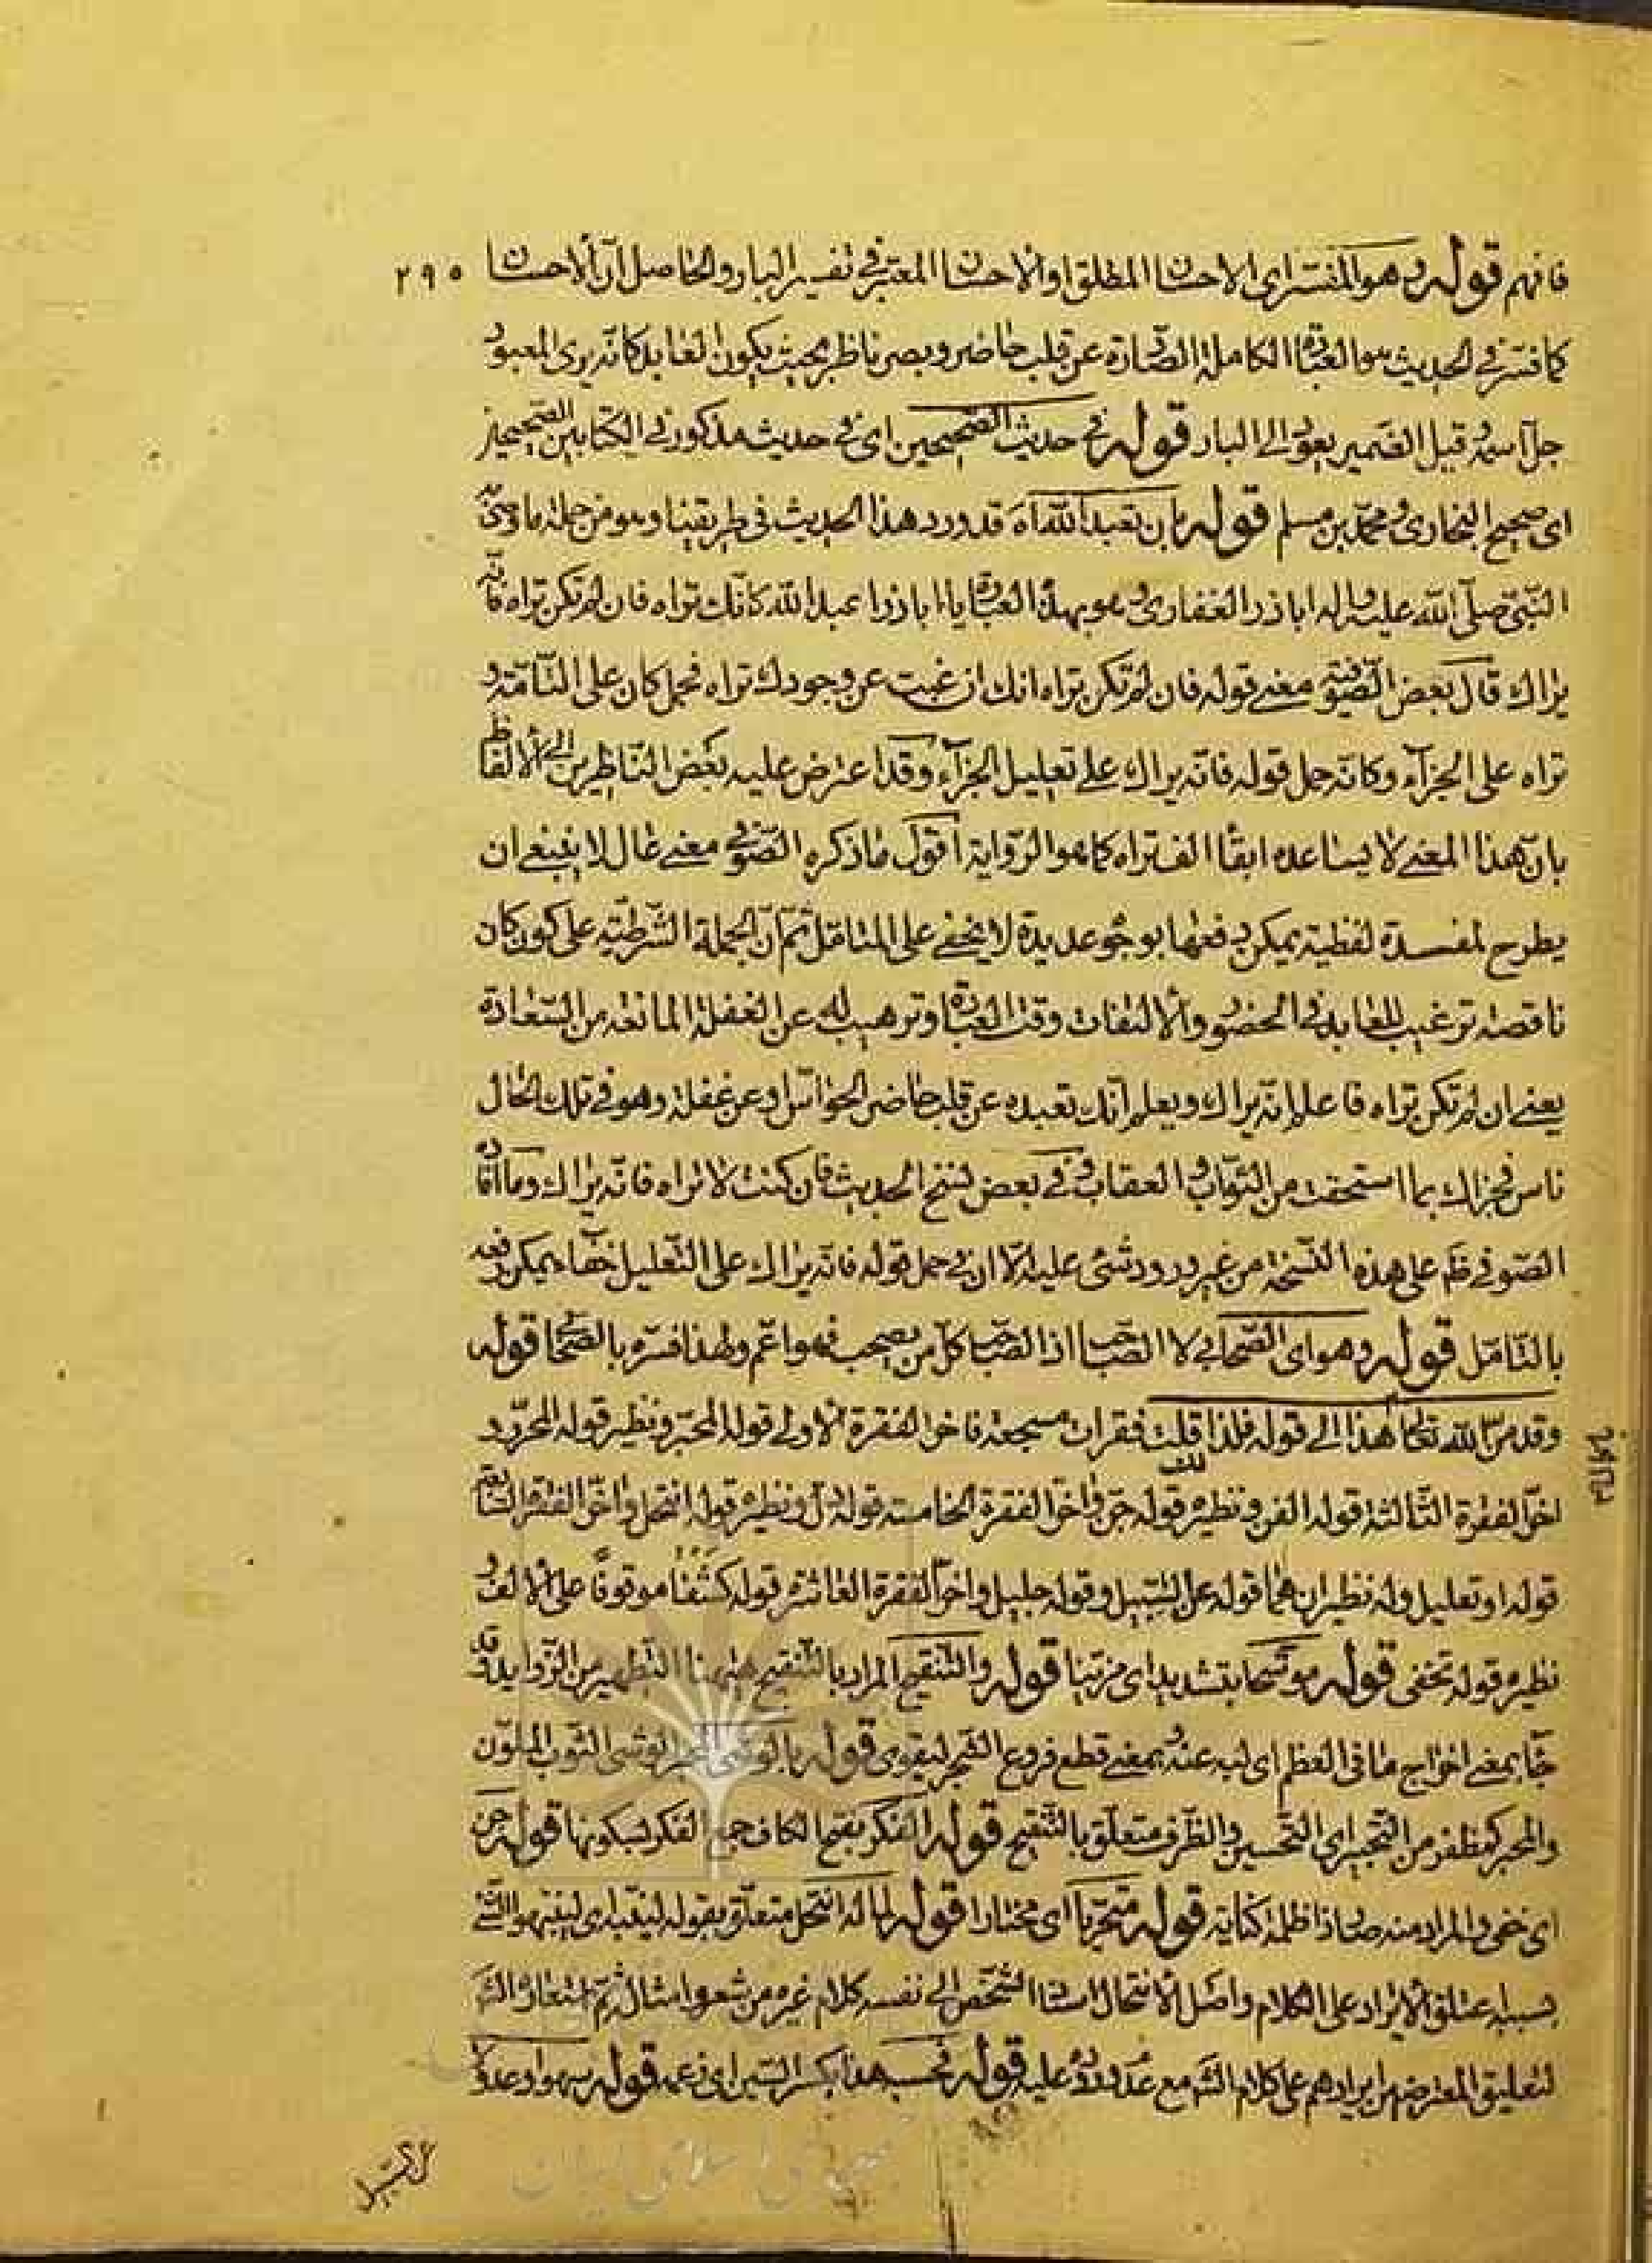 فافهم قوله وهو المفسر اى الاحسان المطلق او الاحسان المعتبر فى تفسير البار والحاصل ان الاحسان ٢٩٥
كما فسر فى الحديث هو العبادة الكاملة الصادرة عن قلب حاضر وبصر ناظر بحيث يكون العابد كانه يرى المعبود
جل اسمه قيل الضمير يعود الى البار قوله فى حديث الصحيحين اى فى حديث مذكور فى الكتابين الصحيحين
اى صحيح البخارى ومحمد بن مسلم قوله بان تعبد الله اه قد ورد هذا الحديث فى طريقنا وهو من جملة ما وصى
النبى صلى الله عليه واله اباذر الغفارى وهو بهذه العبارة يا اباذر اعبد الله كانك تراه فان لم تكن تراه فانه
يراك قال بعض الصوفية معنى قوله فان لم تكن تراه انك ان غبت عن وجودك تراه فحمل كان على التامة و
تراه على الجزاء وكانه حمل قوله فانه يراك على تعليل الجزاء وقد اعترض عليه بعض الناظرين الى الالفاظ
بان هذا المعنى لا يساعده ابقاء الف تراه كما هو الرواية اقول ما ذكره الصوفى معنى عال لا ينبغى ان
يطرح لمفسدة لفظية يمكن دفعها بوجوه عديدة لا يخفى على المتامل ثم ان الجملة الشرطية على كون كان
ناقصة ترغيب للعابد فى الحضور والالتفات وقت العبادة وترهيب له عن الغفلة المانعة من السعادة
يعنى ان لم تكن تراه فاعلم انه يراك ويعلم انك تعبده عن قلب حاضر الحواس او عن غفلة وهو فى تلك الحال
ناس فيجزاك بما استحقت من الثواب والعقاب وفى بعض نسخ الحديث فان كنت لا تراه فانه يراك وما افاده
الصوفى ظم على هذه النسخة من غير ورود شىء عليه الا ان فى حمل قوله فانه يراك على التعليل خفاء يمكن دفعه
بالتامل قوله وهو اى الصحابى لا الصاحب اذ الصاحب كل من يصحب فهو اعم ولهذا فسره بالصحابى قوله
وقد من الله تعالى هذا الى قوله فلذا قلت فقرات مسجعة فاخر الفقرة الاولى قوله المحبر ونظيره قوله المحرر و
اخر الفقرة الثالثة قوله الفن ونظيره قوله جن واخر الفقرة الخامسة قوله ونظيره قوله انتحل واخر الفقرة السابعة
قوله او تعليل وله نظيران هما قوله عن السبيل وقوله جليل واخر الفقرة العاشرة قوله كشفا موقوفا على الالف و
نظيره قوله تخفى قوله موشحا بتشديد اى مزينا قوله والتنقيح المراد بالتنقيح ههنا التطهير من الزوايد وقد
جاء بمعنى اخراج ما فى العظم اى لبه عنه وبمعنى قطع فروع الشجر ليقوى قوله بالوشى المحبر الوشى الثوب الملون
والمحبر كمظفر من التحبير اى التحسين والظرف متعلق بالتنقيح قوله الفكر بفتح الكاف جمع الفكر بسكونها قوله جن
اى خفى والمراد منه صار ذا ظلمة كناية قوله متحريا اى مختارا قوله لما له انتحل متعلق بقوله ليتنبه اى ليتنبهوا الشىء
بسببه علق الايراد على الكلام واصل الانتحال اسناد الشخص الى نفسه كلام غيره من شعر وامثاله ثم استعاره الش
لتعليق المعترضين ايرادهم على كلام الش مع عدم وروده عليه قوله تحسب هذا بكسر السين اى زعمه قوله سهوا وعدولا
عن سبيل